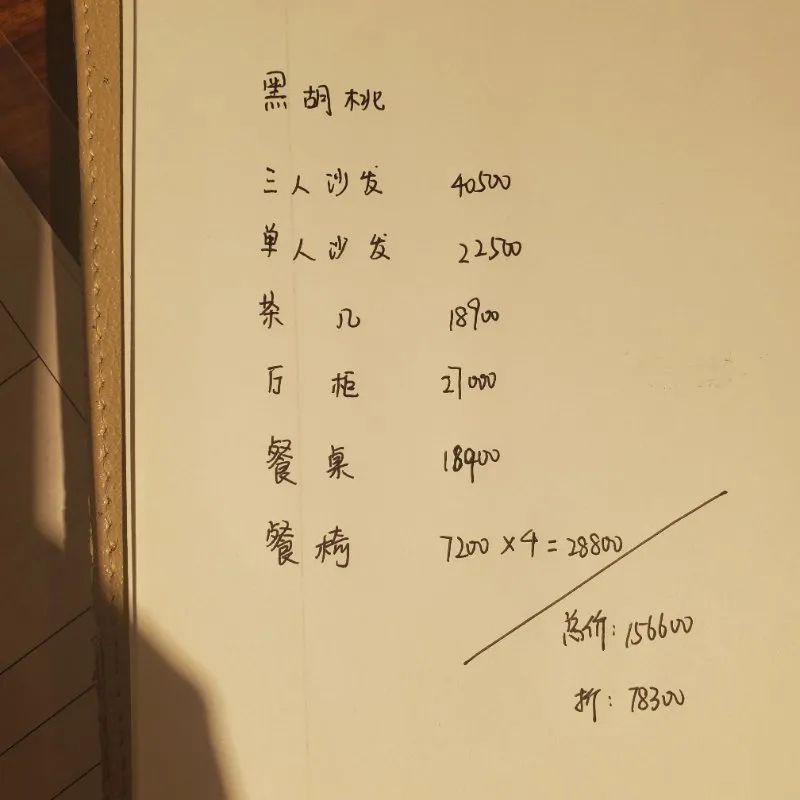 黑胡桃
三人沙发 40500
单人沙发 22500
茶几 18900
厅柜 27000
餐桌 18900
餐椅 7200×4=28800
总价:156600
折:78300